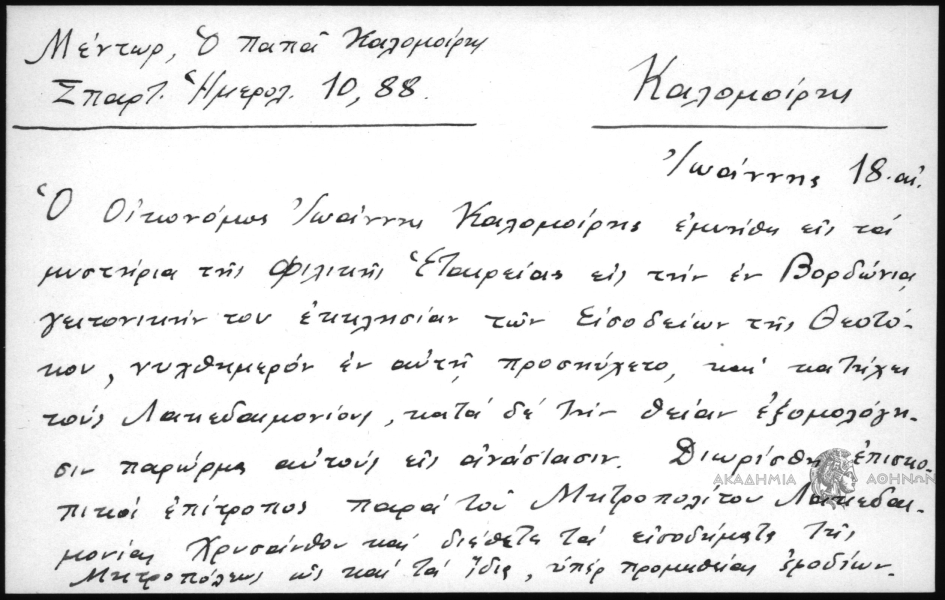 Μέντωρ, Ὁ παπᾶ Καλομοίρης
Σπαρτ. Ἡμερολ. 10, 88.
Καλομοίρης
Ἰωάννης 18. αἰ.
Ὁ Οἰκονόμος Ἰωάννης Καλομοίρης ἐμυήθη εἰς τά
μυστήρια τῆς Φιλικῆς Ἑταιρείας εἰς τήν ἐν Βορδώνια,
γειτονικήν του ἐκκλησίαν τῶν Εἰσοδείων τῆς Θεοτό-
κου, νυχθημερόν ἐν αὐτῇ προσηύχετο, καί κατήχει
τούς Λακεδαιμονίους, κατά δέ τήν θείαν ἐξομολόγη-
σιν παρώρμα αὐτούς εἰς ἀνάστασιν. Διωρίσθη ἐπισκο-
πικός ἐπίτροπος παρά τοῦ Μητροπολίτου Λακεδαι-
μονίας Χρυσάνθου καί διέθετε τά εἰσοδήματα τῆς
Μητροπόλεως ὡς καί τά ἴδια, ὑπέρ προμηθείας ἐφοδίων.
ΑΚΑΔΗΜΙΑ ΑΘΗΝΩΝ